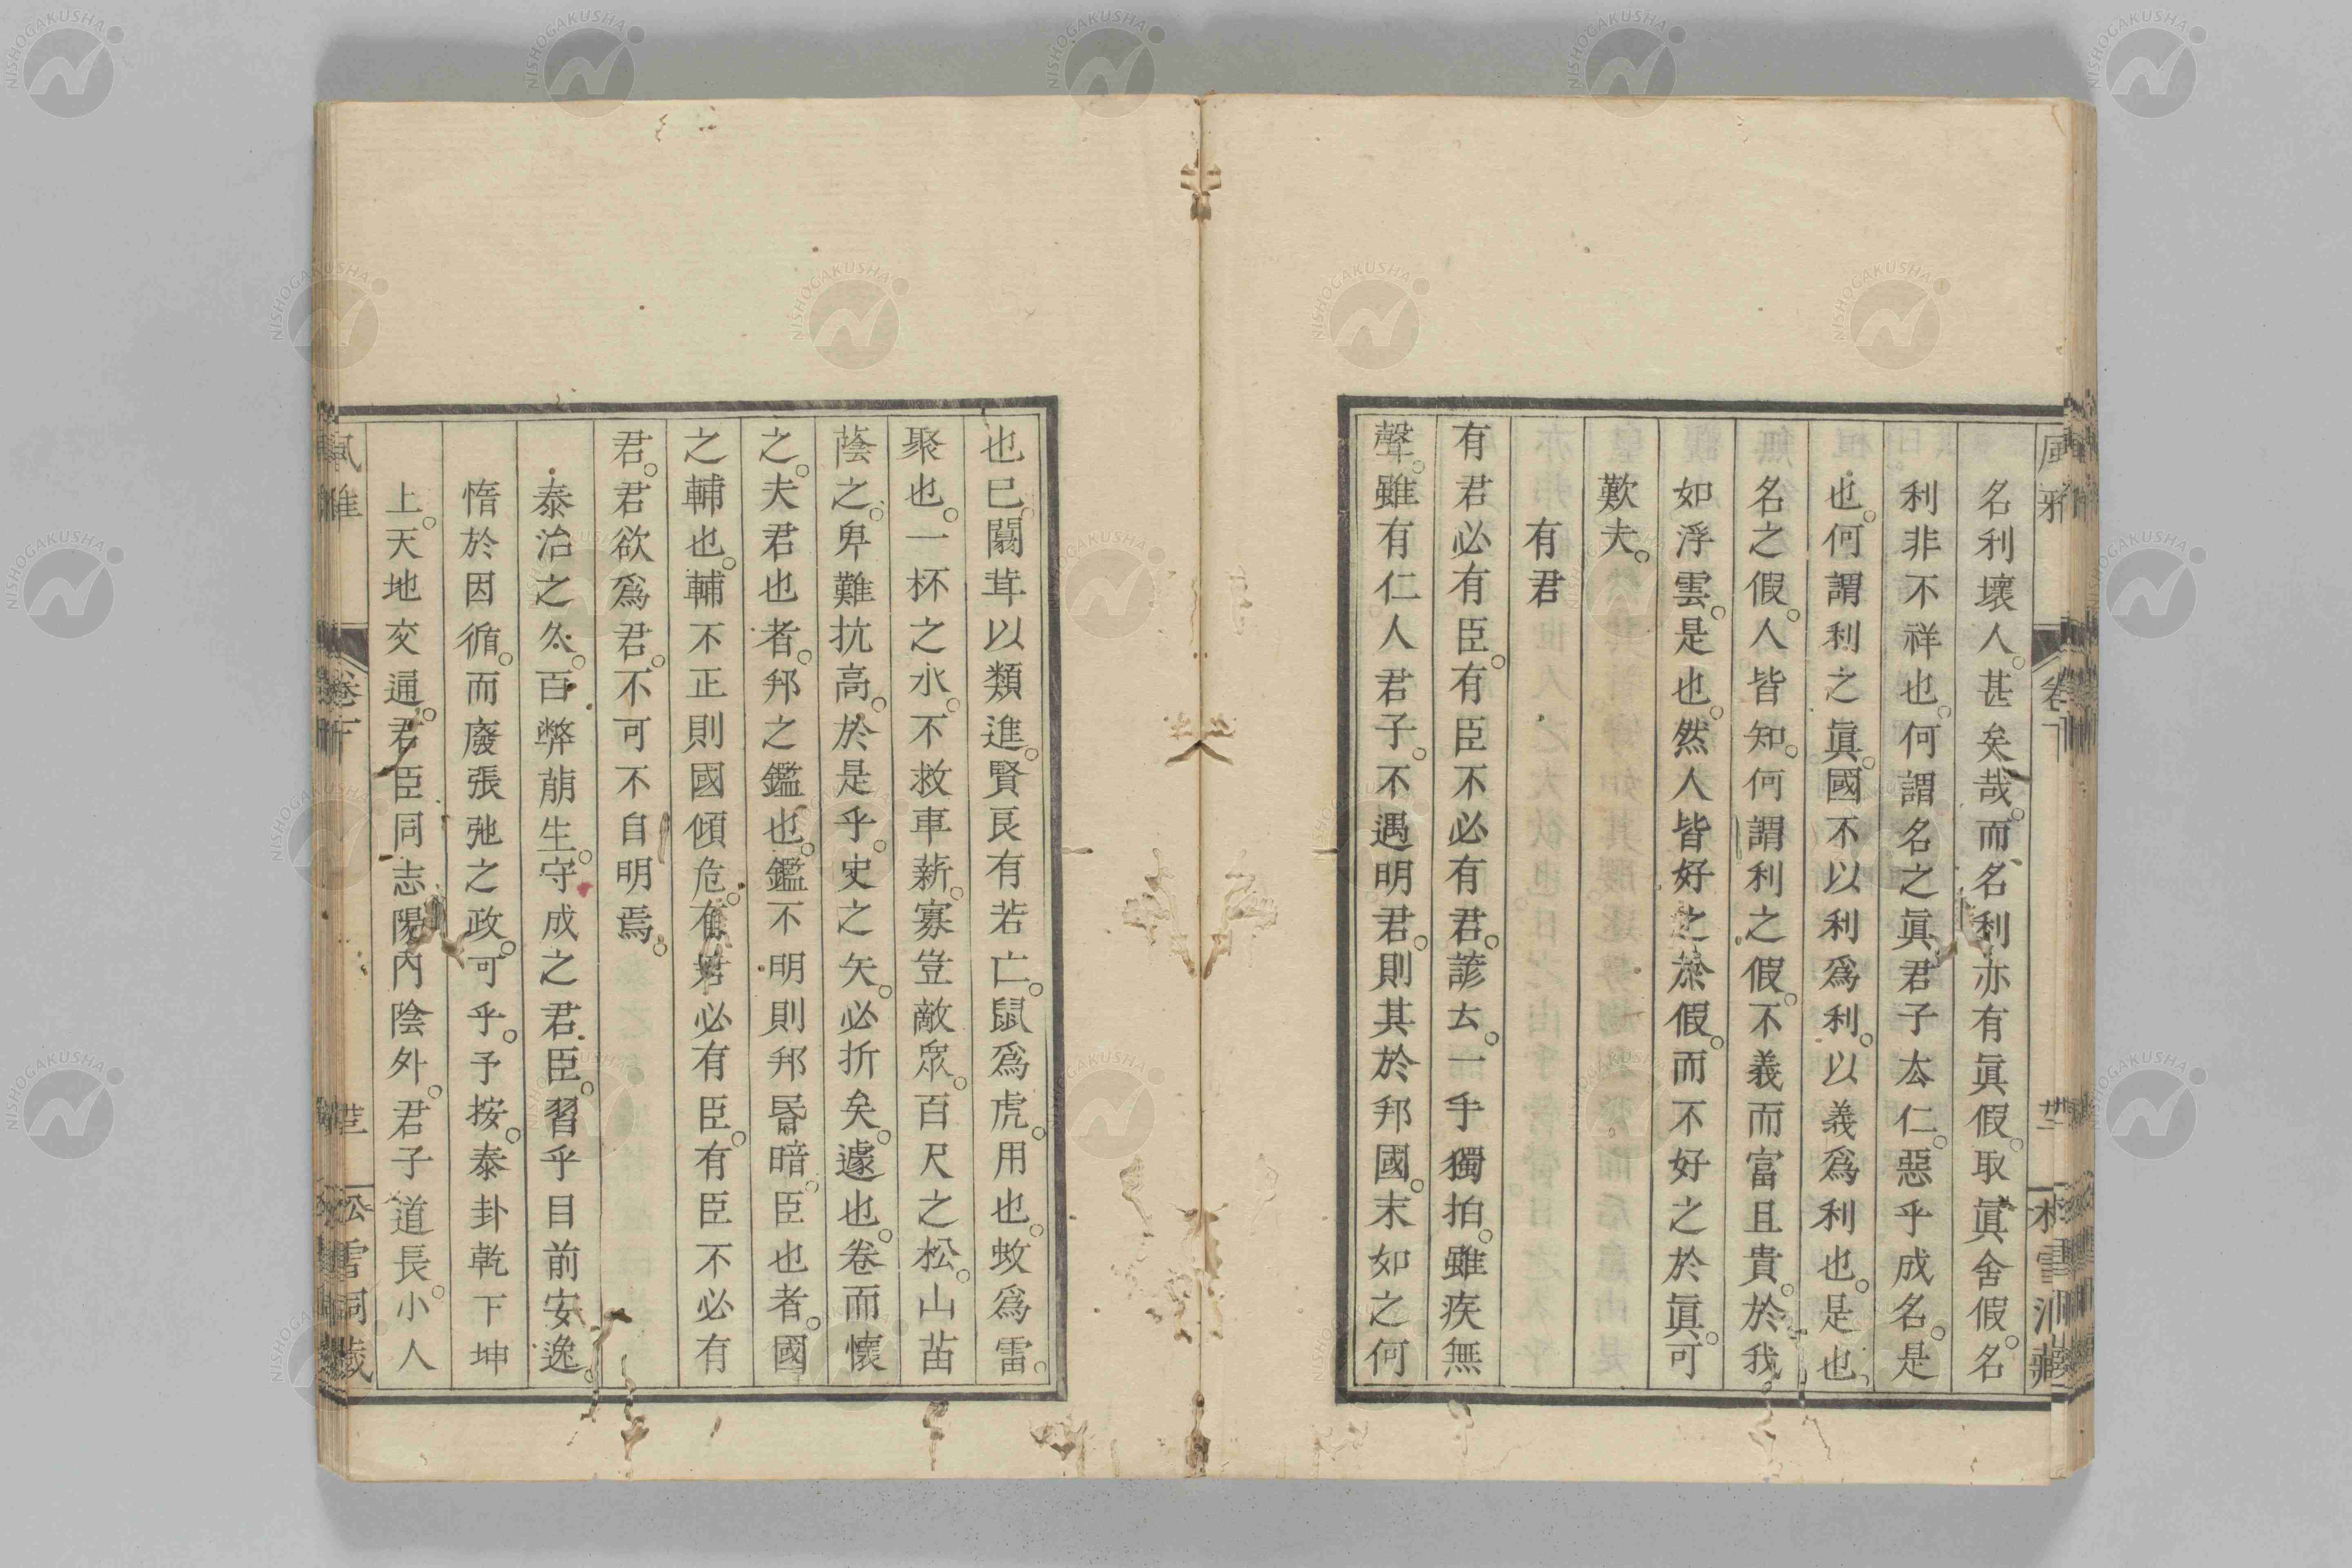 名利壞人。甚矣哉。而名利亦有眞假。取眞舍假。名
利非不祥也。何謂名之眞。君子去仁。惡乎成名。是
也。何謂利之眞。國不以利爲利。以義爲利也。是也。
名之假。人皆知。何謂利之假。不義而富且貴。於我
如浮雲。是也。然人皆好之於假。而不好之於眞。可
歎夫。
有君
有君必有臣。有臣不必有君。諺云。一手獨拍。雖疾無
聲。雖有仁人君子。不遇明君。則其於邦國。末如之何
也已。闒茸以類進。賢良有若亡。鼠爲虎。用也。蚊爲雷。
聚也。一杯之水。不救車薪。寡豈敵衆。百尺之松。山苗
蔭之。卑難抗高。於是乎。史之矢。必折矣。遽也。卷而懷
之。夫君也者。邦之鑑也。鑑不明則邦昬暗。臣也者。國
之輔也。輔不正則國傾危。有君必有臣。有臣不必有
君。君欲爲君。不可不自明焉。
泰治之久。百弊萠生。守成之君臣。習乎目前安逸。
惰於因循。而廢張弛之政。可乎。予按。泰卦乾下坤
上。天地交通。君臣同志。陽內陰外。君子道長。小人
風雅
卷下
松雪洞藏
NISHOGAKUSHA